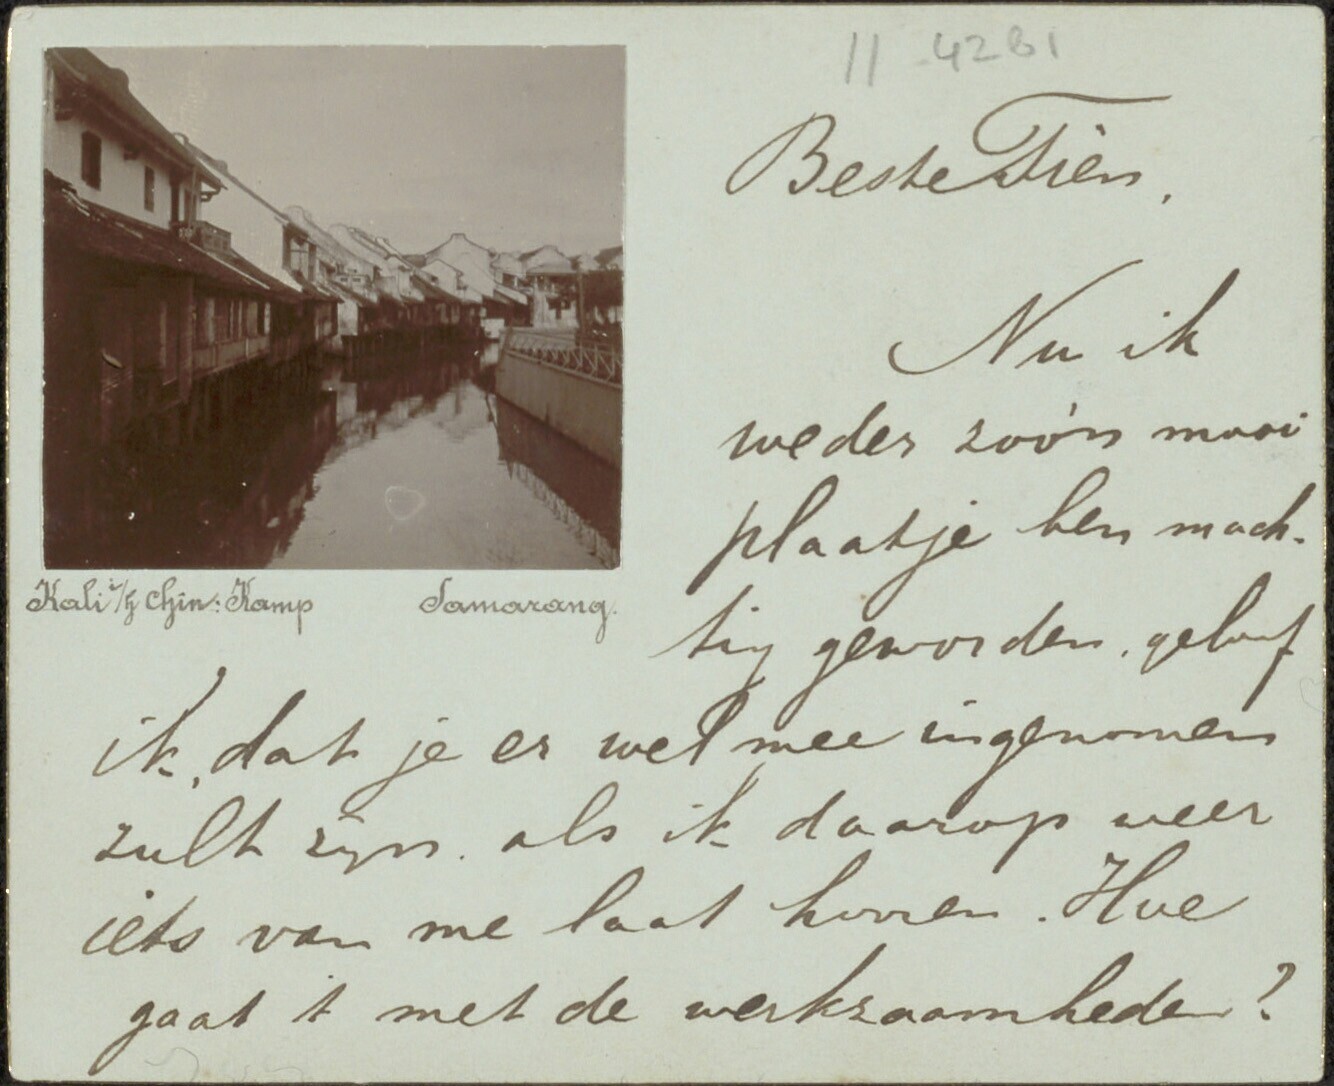 11-4281
Beste Tièn,
Nu ik
weder zoo'n mooi
plaatje ben mach-
tig geworden, geloof
ik, dat je er wel mee ingenomen
zult zijn als ik daarop weer
iets van me laat hooren. Hoe
gaat 't met de werkzaamheden?
Kali i/h Chin: Kamp Samarang.